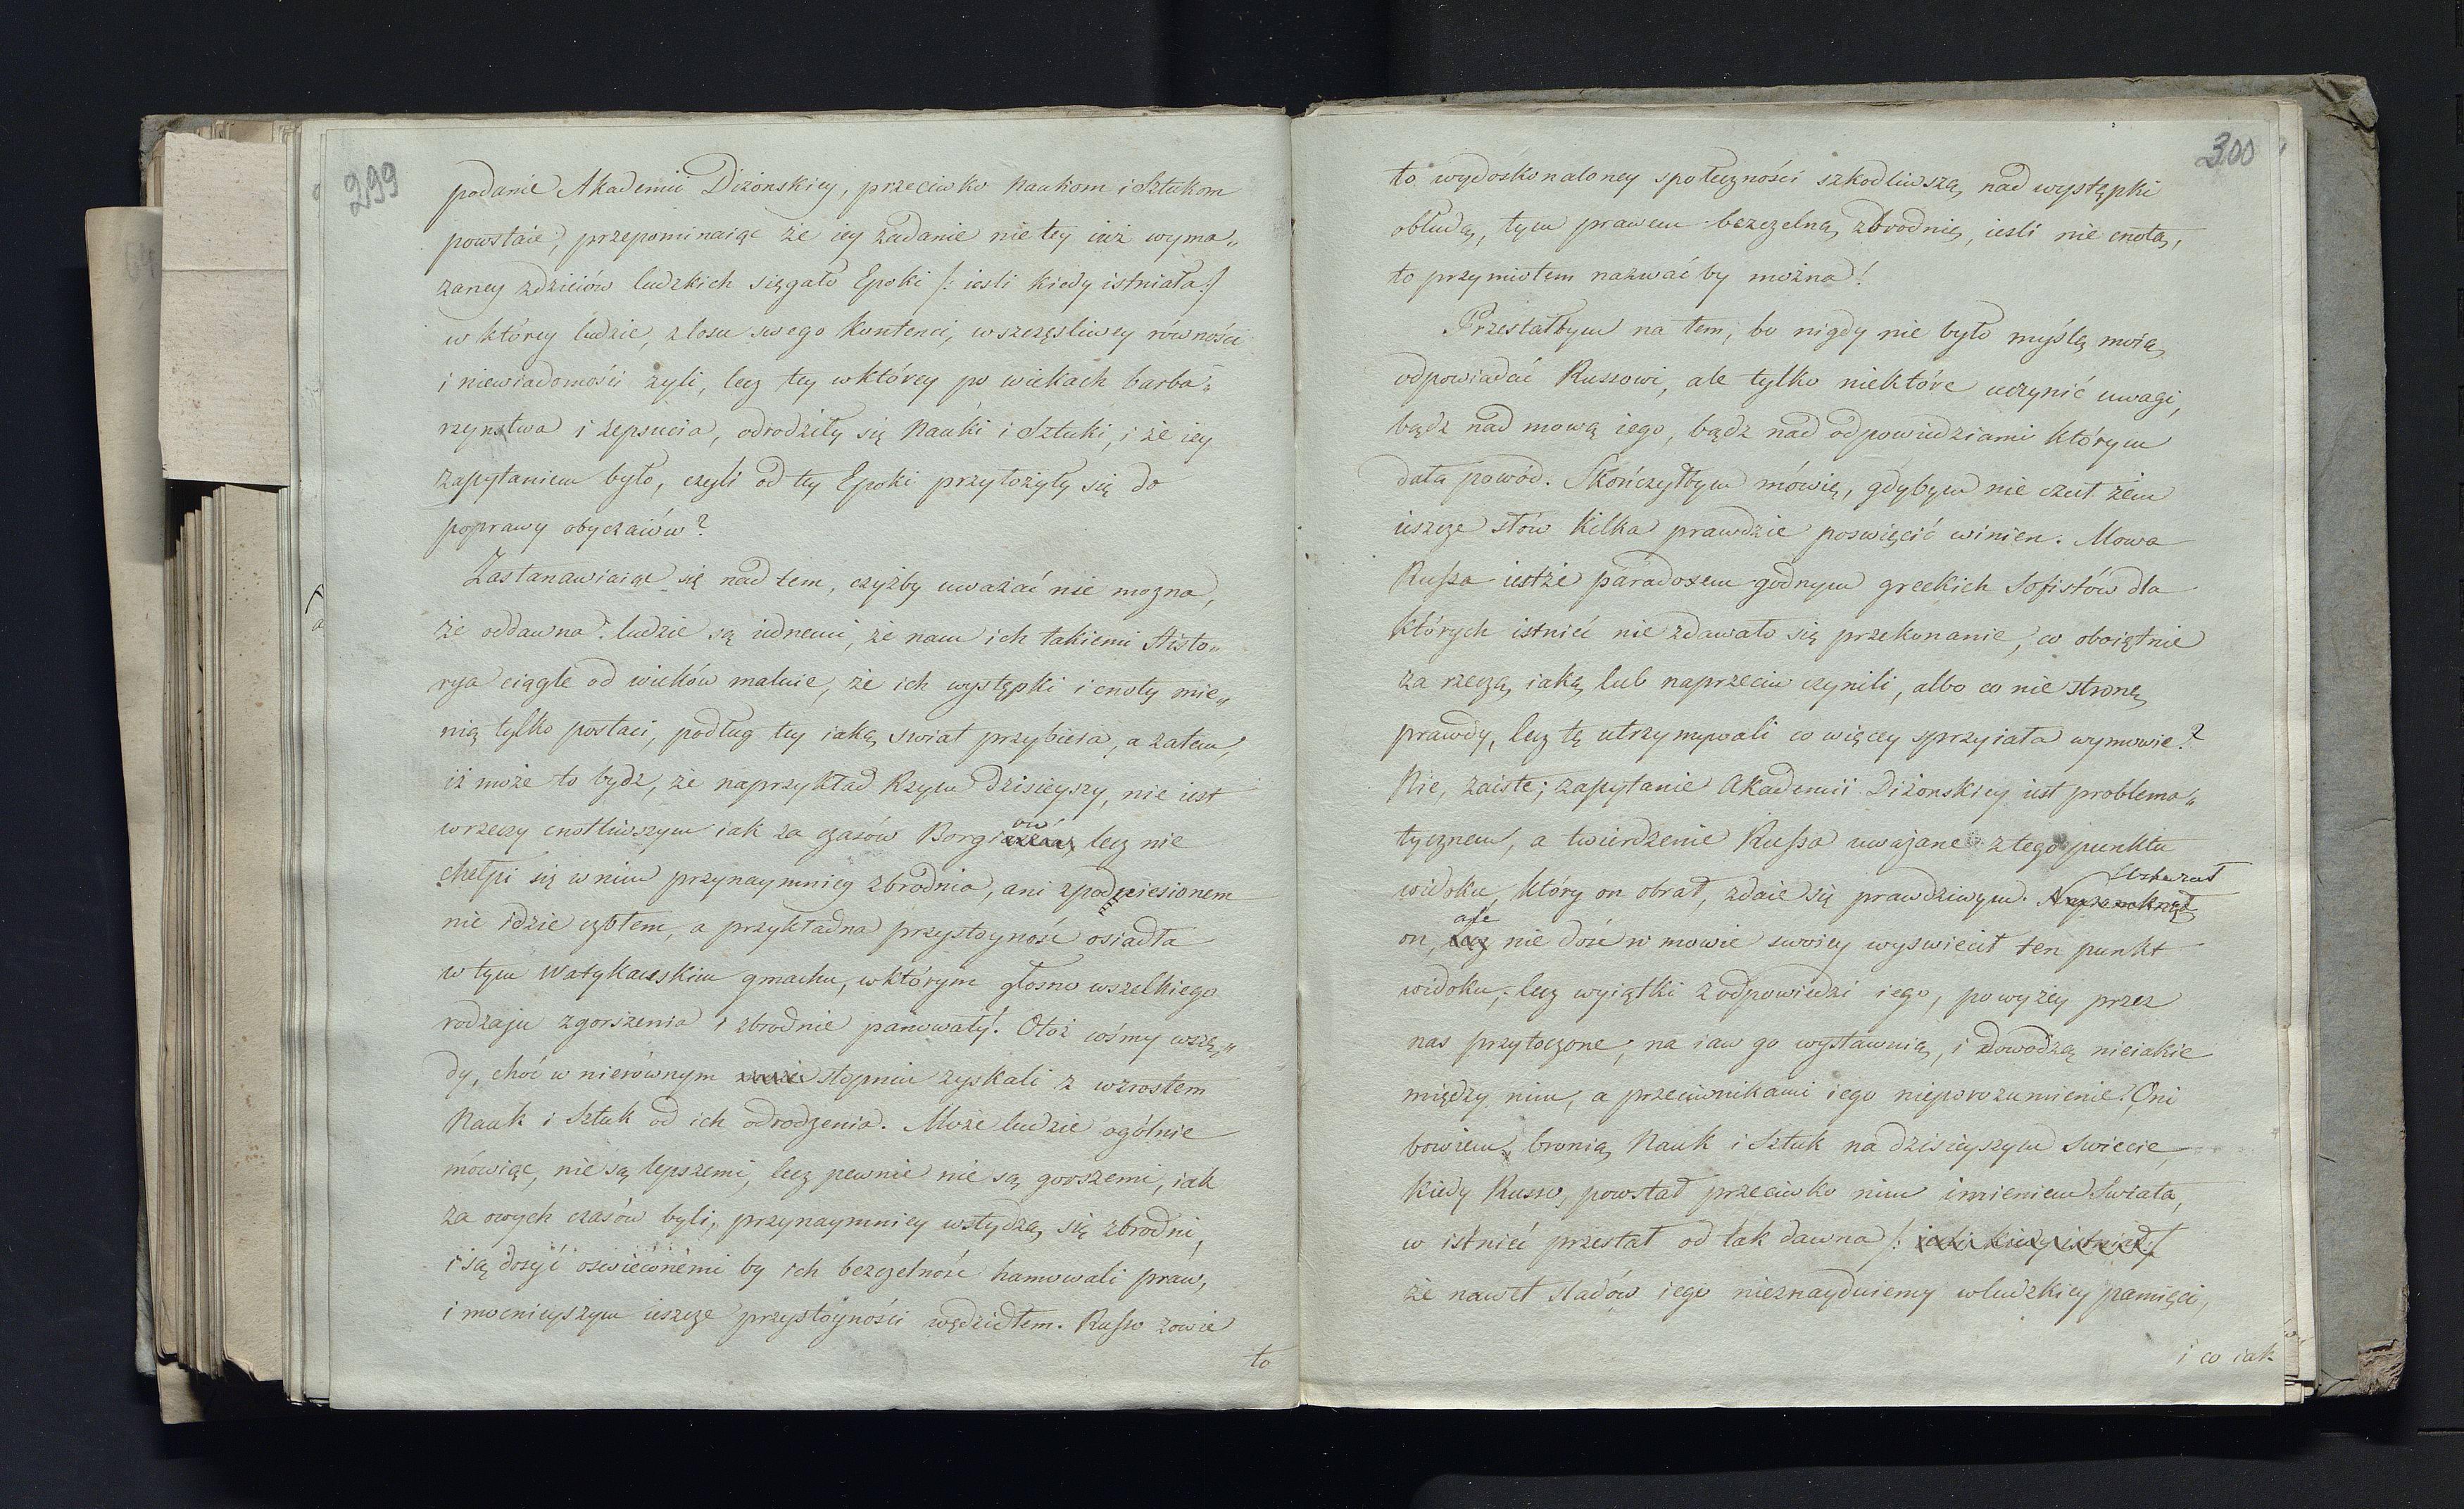 299
podanie Akademii Diżonskiey, przeciwko Naukom i Sztukom
powstaie, przepominaiąc że iey zadanie nie tey iuż wyma„
zaney zdzieiów ludzkich sięgało Epoki /: iesli kiedy istniała :/
w którey ludzie, z losu swego kontenci, w szczęsliwey równości
i niewiadomości żyli, lecz tey w którey po wiekach barba„
rzynstwa i zepsucia, odrodziły się Nauki i Sztuki, i że iey
zapytaniem było, czyli od tey Epoki przyłożyły się do
poprawy obyczaiów?
Zastanawiaiąc się nad tem, czyżby uważać nie mozna,
że oddawna ludzie są iednemi, że nam ich takiemi Histo„
rya ciągle od wieków maluie, że ich występki i cnoty mie„
nią tylko postaci, podług tey iaką swiat przybiera, a zatem,
iż może to bydz, że naprzykład Rzym dzisieyszy, nie iest
w rzeczy cnotliwszym iak za czasów Borgiów, lecz nie
chełpi się w nim przynaymniey zbrodnia, ani z podniesionem
nie idzie czołem, a przykładna przystoyność osiadła
w tym Watykańskim gmachu, w którym głosno wszelkiego
rodzaju zgorszenia i zbrodnie panowały! Otóż cośmy wszę„
dy, choć w nierównym stopniu zyskali z wzrostem
Nauk i Sztuk od ich odrodzenia. Może ludzie ogólnie
mówiąc, nie są lepszemi, lecz pewnie nie są gorszemi, iak
za owych czasów byli; przynaymniey wstydzą się zbrodni,
i są dosyć oswieconemi by ich bezczelność hamowali praw,
i mocnieyszym ieszcze przystoyności wędzidłem. Russo zowie
to
300
to wydoskonaloney społeczności szkodliwszą nad występki
obłudą, tym prawem bezczelną zbrodnię, iesli nie cnotą,
to przymiotem nazwać by można!
Przestałbym na tem, bo nigdy nie było myślą moią
odpowiadać Russowi, ale tylko niektóre uczynić uwagi,
bądz nad mową iego, bądz nad odpowiedziami którym
dała powód. Skończyłbym mówię, gdybym nie czuł żem
ieszcze słów kilka prawdzie poswięcić winien. Mowa
Russa iestże paradoxem godnym greckich Sofistów dla
których istnieć nie zdawało się przekonanie, co oboiętnie
za rzeczą iaką lub naprzeciw czynili, albo co nie stronę
prawdy, lecz tę utrzymywali co więcey sprzyiała wymowie?
Nie, zaiste; zapytanie Akademii Diżonskiey iest problema„
tycznem, a twierdzenie Russa uważane z tego punktu
widoku, który on obrał, zdaie się prawdziwym.
on, ale nie dość w mowie swoiey wyswiecił ten punkt
widoku; lecz wyiątki z odpowiedzi iego, powyżey przez
nas przytoczone, na iaw go wystawuią, i dowodzą nieiakie
między nim, a przeciwnikami iego nieporozumienie. Oni
bowiem bronią Nauk i Sztuk na dzisieyszym Swiecie,
kiedy Russo, powstał przeciwko nim imieniem Swiata,
co istnieć przestał od tak dawna /: iesli kiedy istniał :/
że nawet sladów iego nieznayduiemy w ludzkiey pamięci,
i co iak